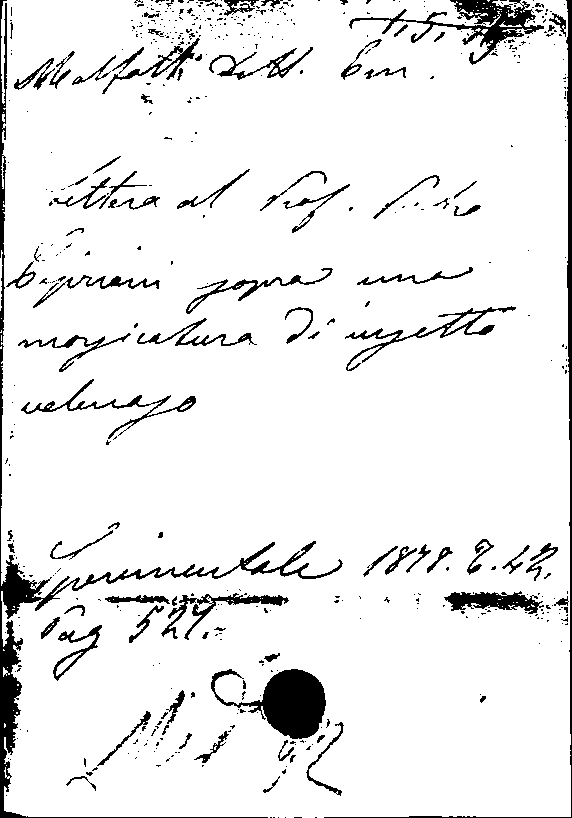 Malfatti Dott. Em.
Lettera al Prof. Pietro
Cipriani sopra una
morsicatura di insetto
velenoso
Sperimentale 1878. T. 42.
Pag 527.